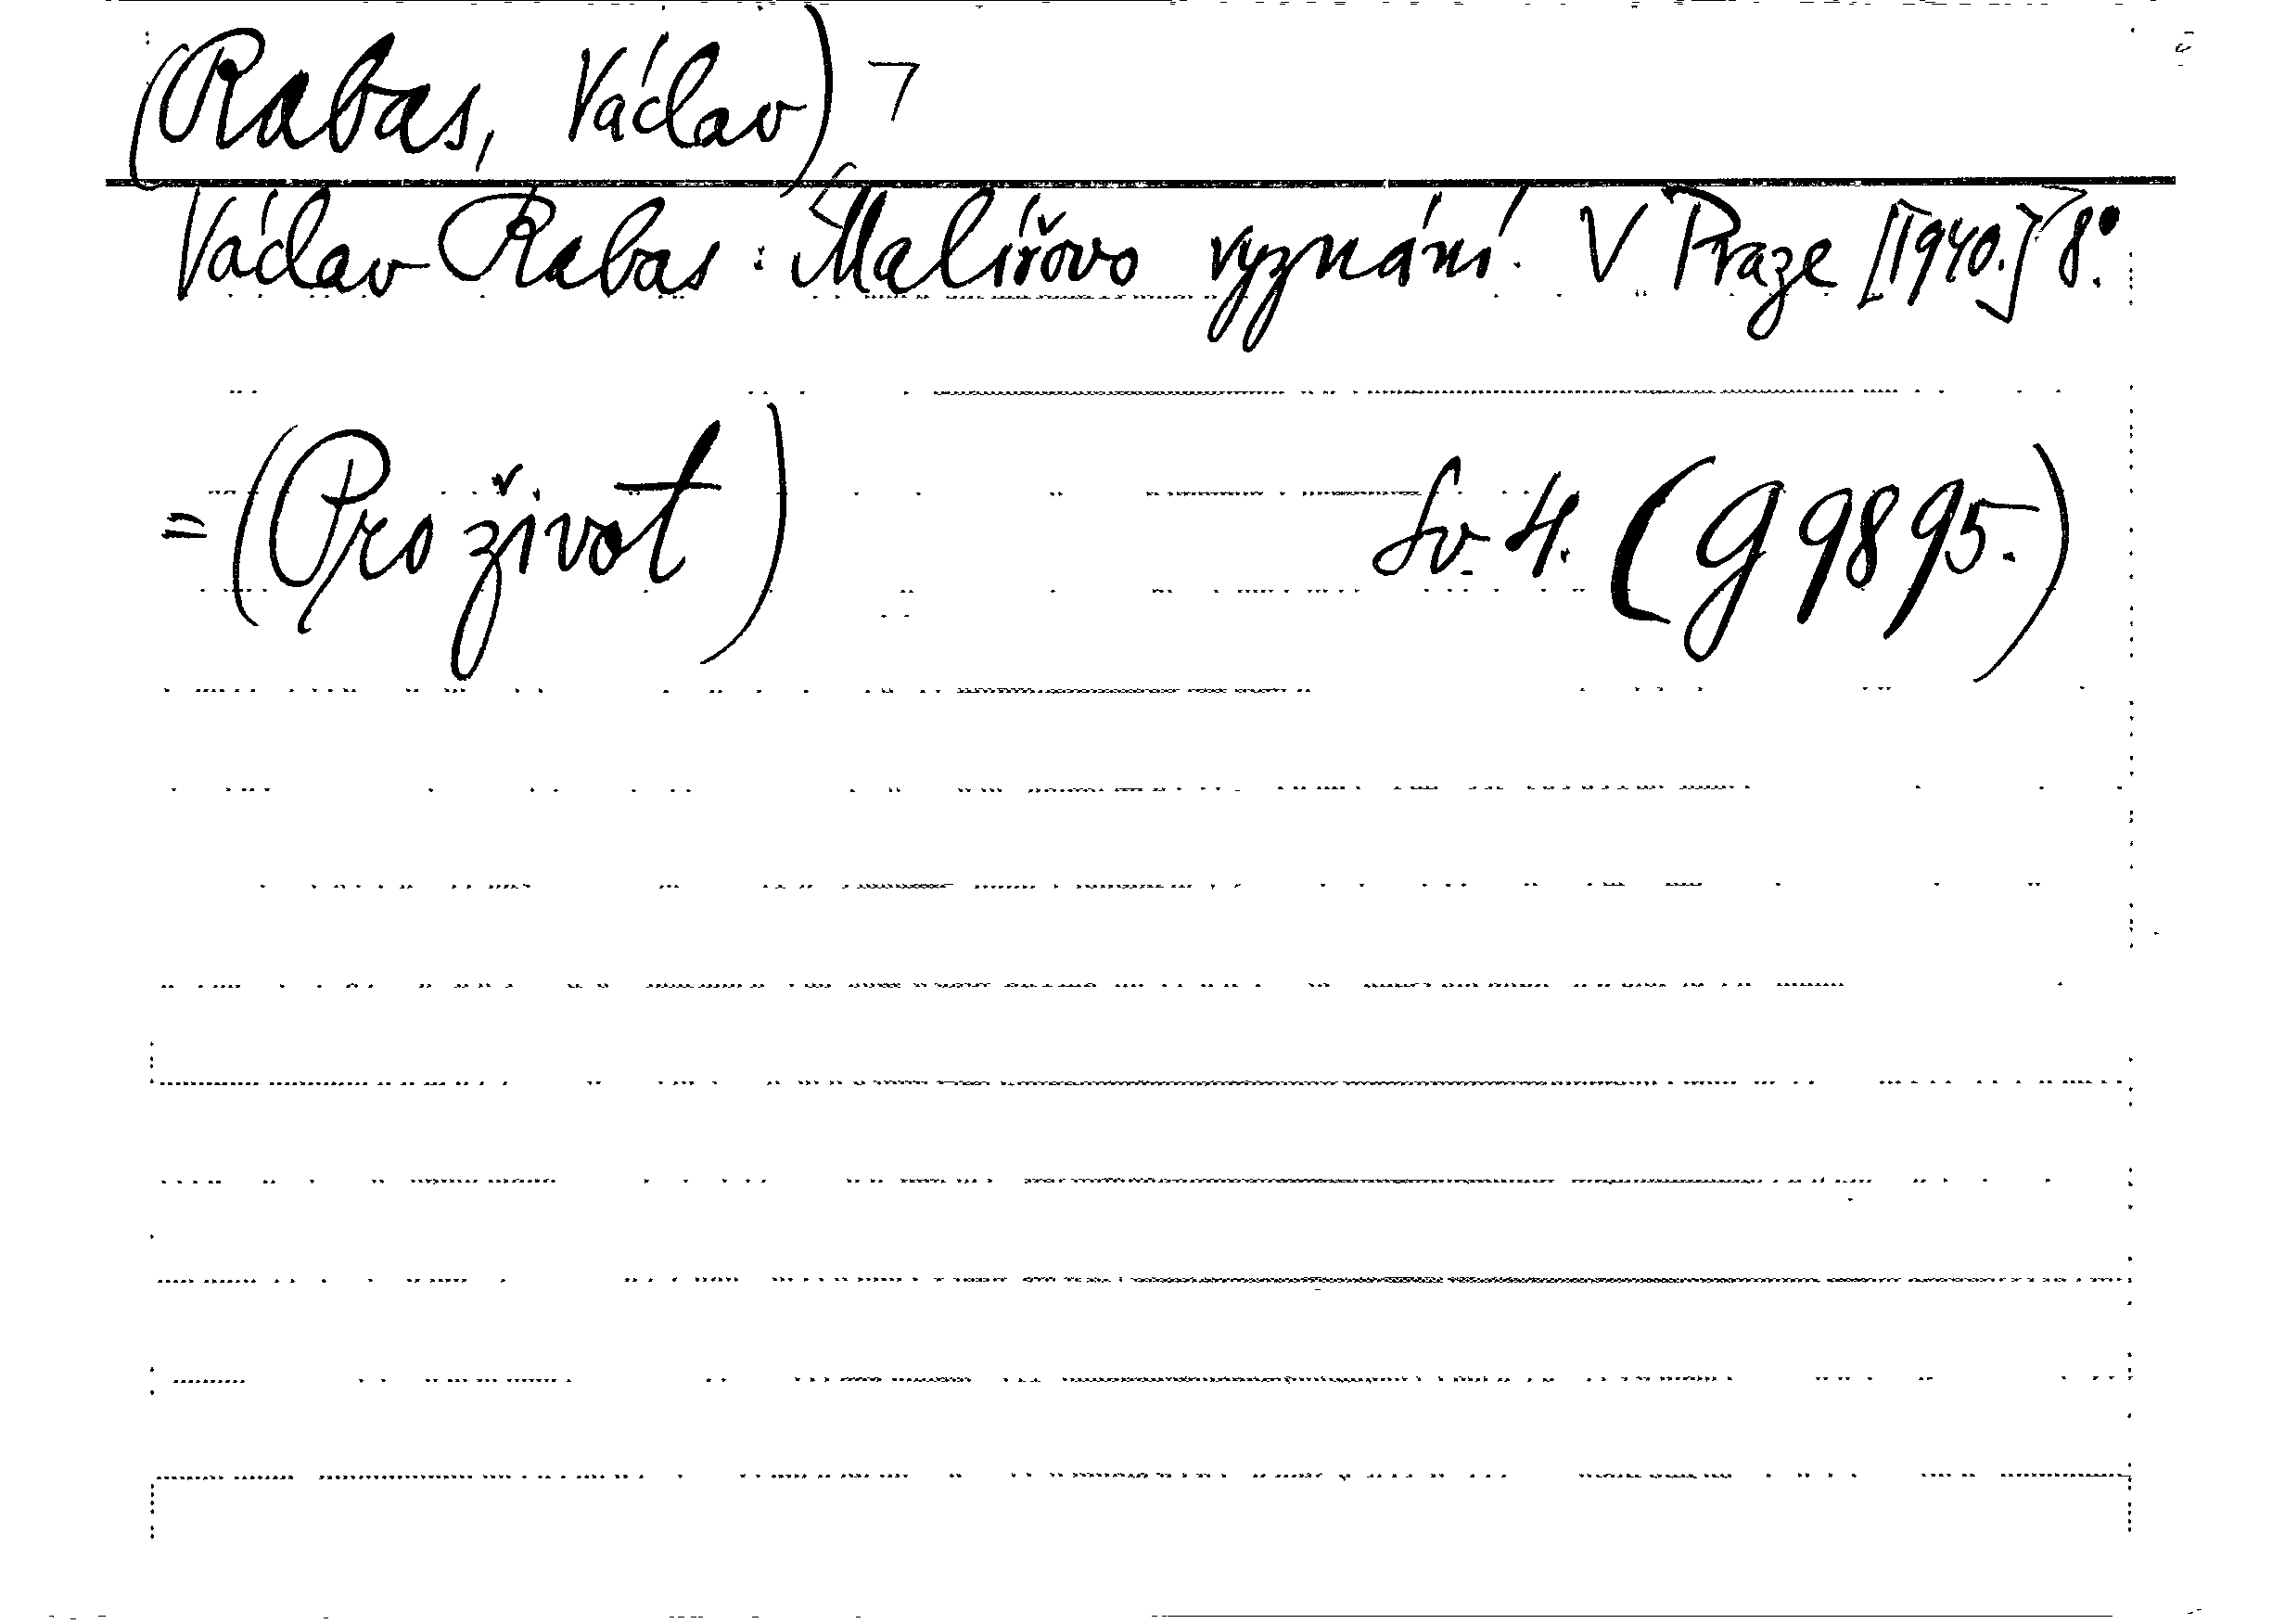 (Rabas, Václav)
Václav Rabas: Malířovo vyznání. V Praze [1940.] 8°.
=(Pro život) Sv. 4. (G 9895.)